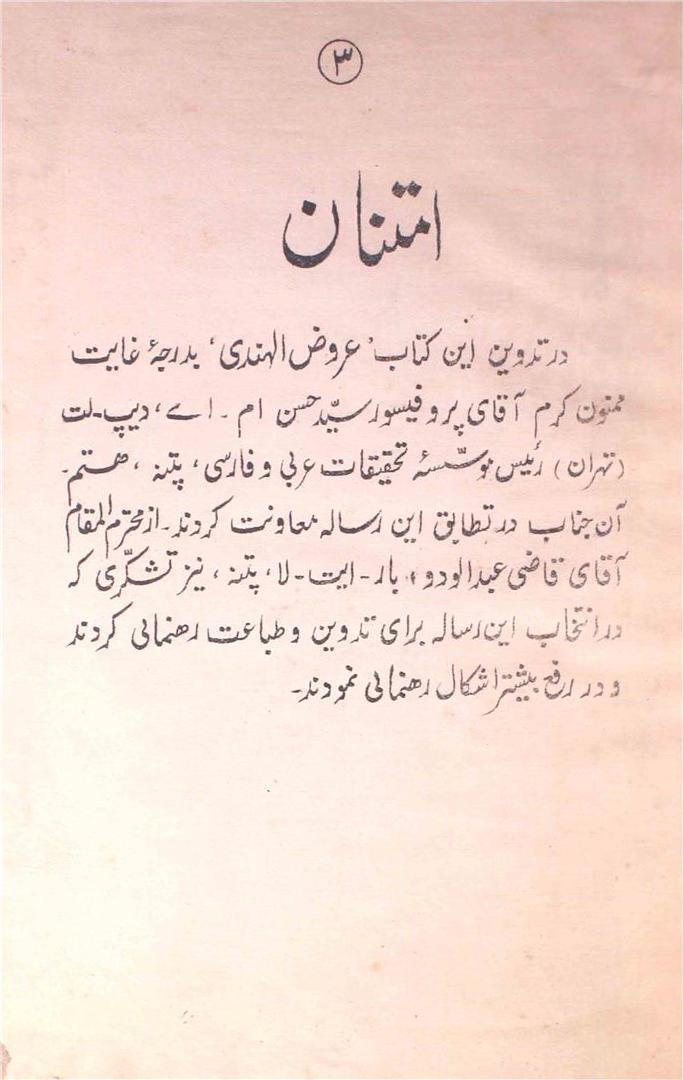 ۳
امتنان
در تدوین این کتاب ’عروض الہندی‘ بدرجۂ غایت
ممنون کرم آقای پروفیسور سیّد حسن ام ۔ اے، دیپ۔لت
(تہران) رئیس موسّسۂ تحقیقات عربی و فارسی، پتنہ، هستم۔
آن جناب در تطابق این رسالہ معاونت کردند۔ از محترم المقام
آقای قاضی عبدالودود بار ۔ ایت ۔ لا، پتنہ، نیز تشکّری کہ
در انتخاب این رسالہ برای تدوین و طباعت رهنمائی کردند
و در رفع بیشتر اشکال رهنمائی نمودند۔